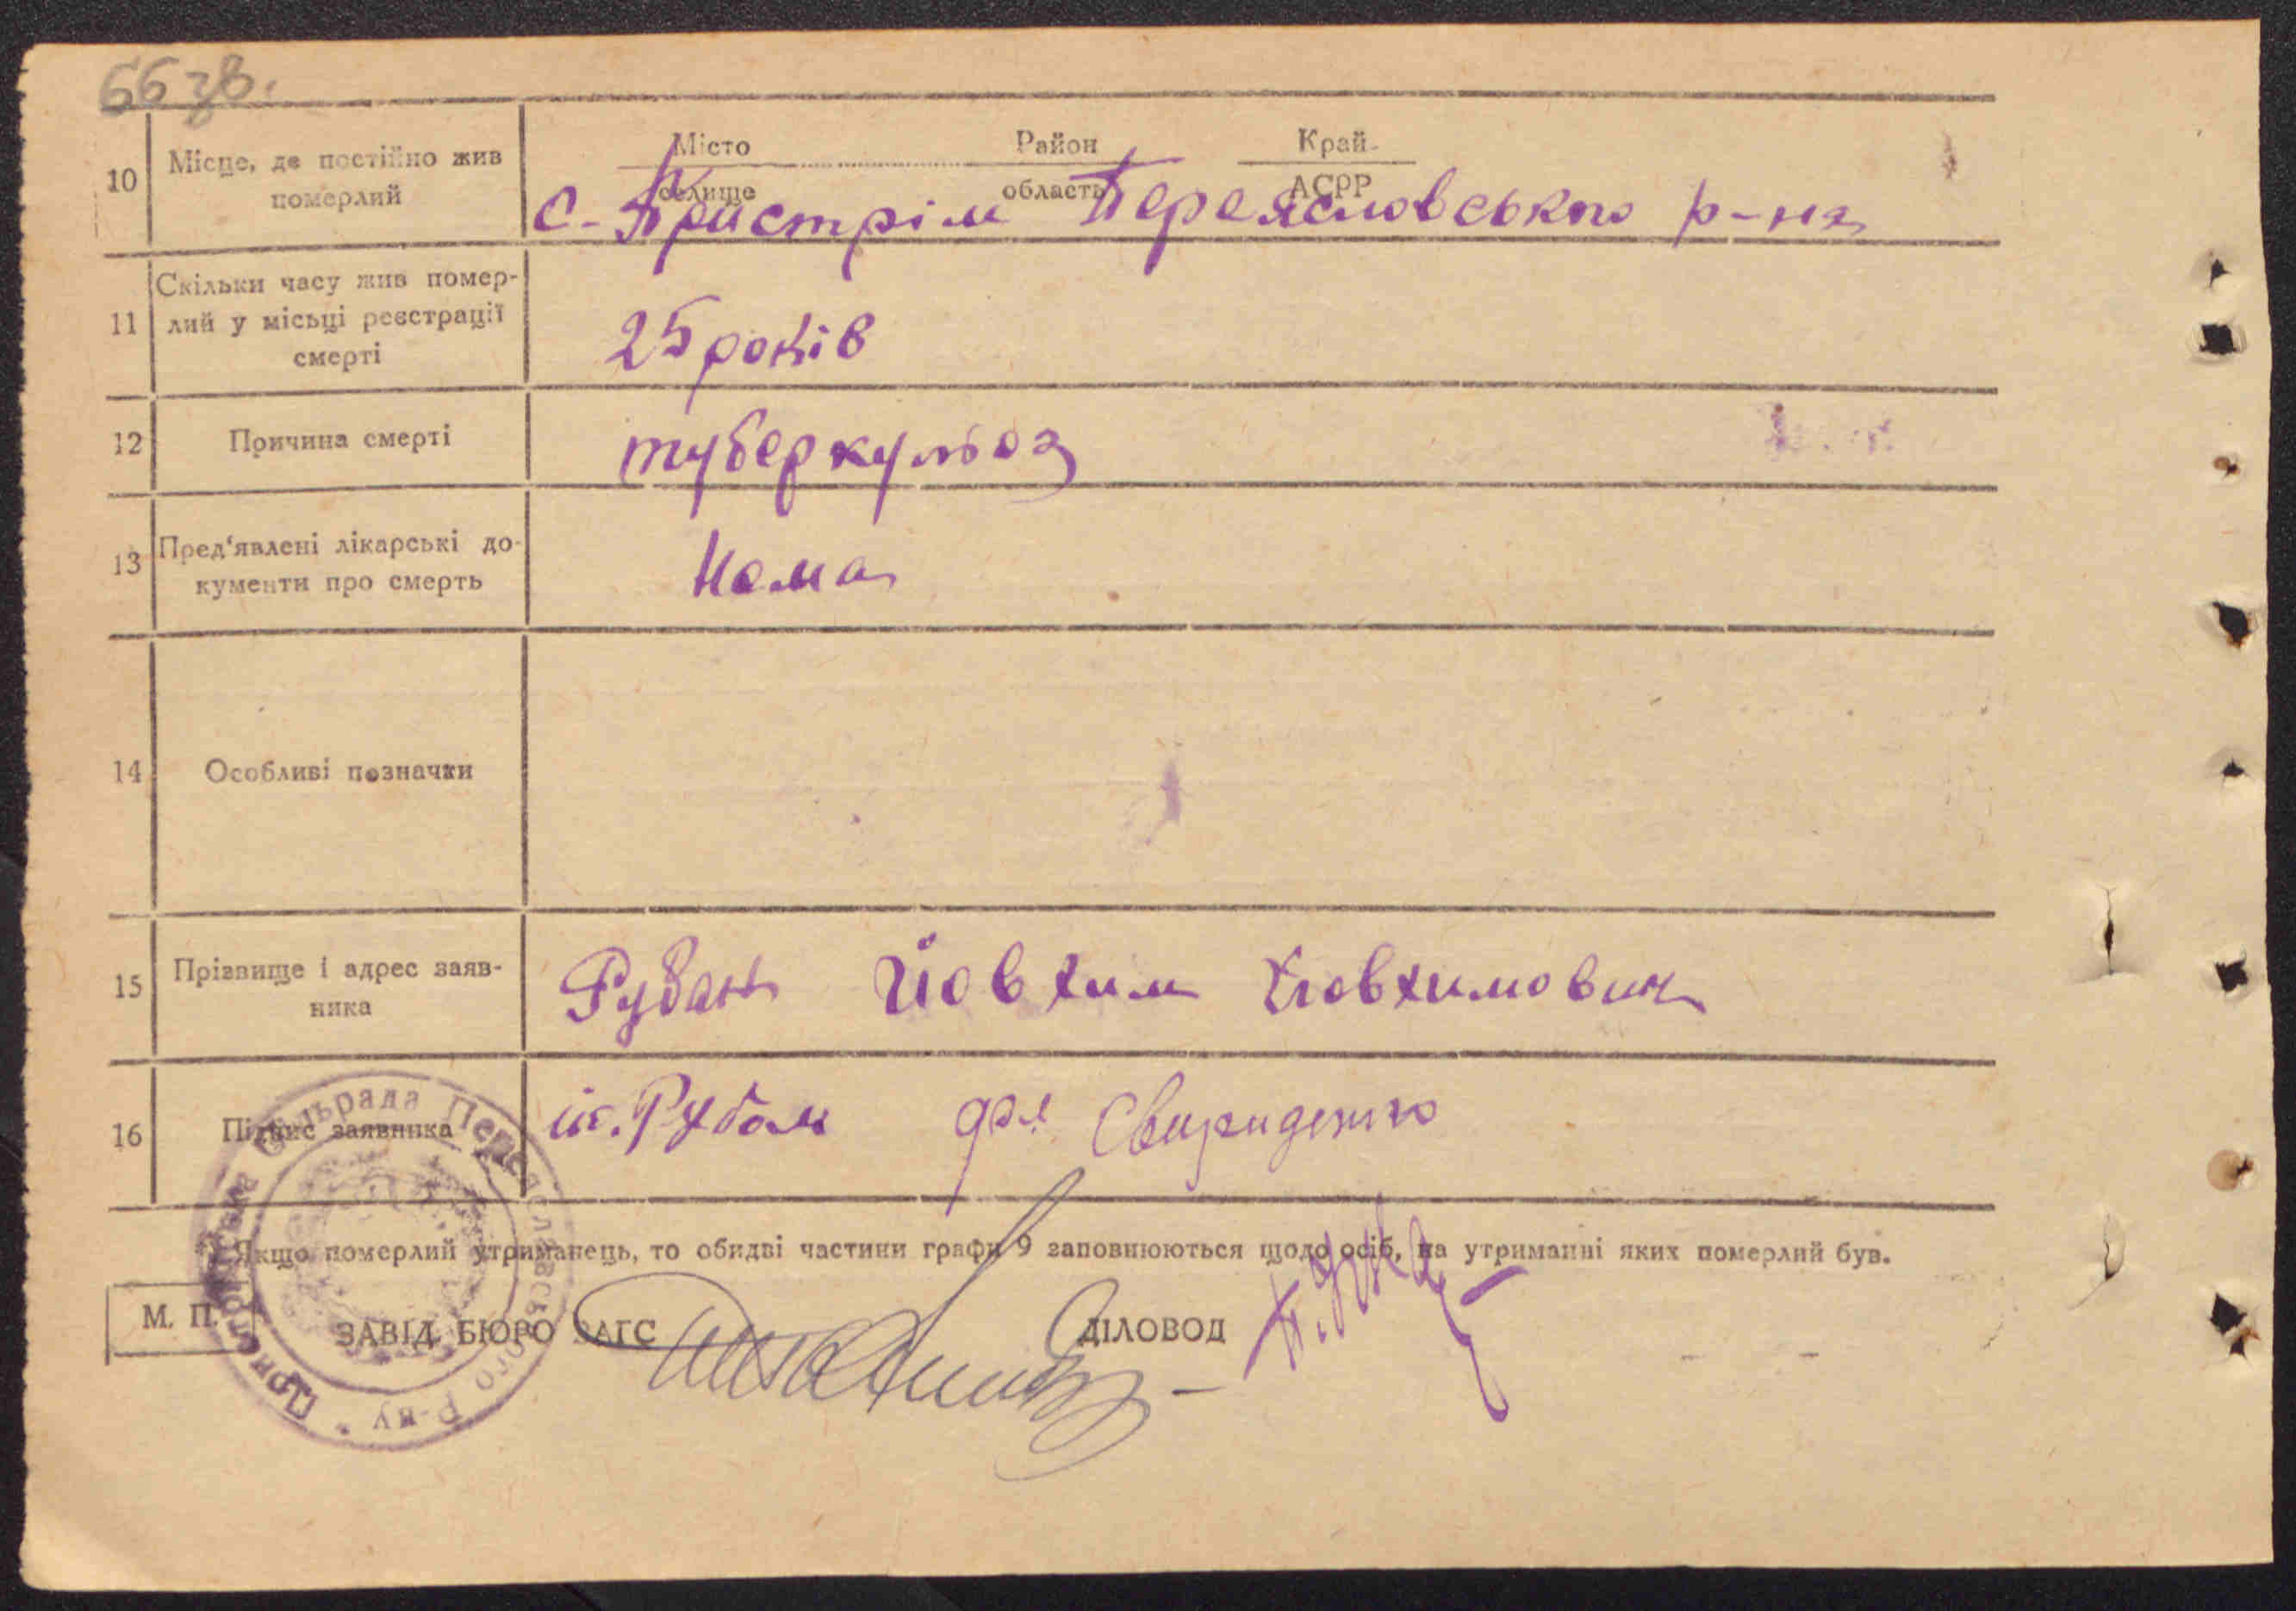 66 зв.
10 Місце, де постійно жив померлий
Місто Район Край
селище область АСРР
с. Пристрім Переясловського р-на
11 Скільки часу жив помер-
лий у місьці реєстрації
смерті
25 років
12 Причина смерті
туберкульоз
13 Пред‘явлені лікарські до-
кументи про смерть
Нема
14 Особливі позначки
15 Прізвище і адрес заяв-
ника
Рубан Йовхим Йовхимович
16 Підпис заявника
Рубан для Свириденко
Якщо померлий утриманець, то обидві частини графи 9 заповнюються щодо осіб, на утриманні яких померлий був.
М. П.
ЗАВІД. БЮРО ЗАГС
ДІЛОВОД
Сільрада Переяславського Р-ну